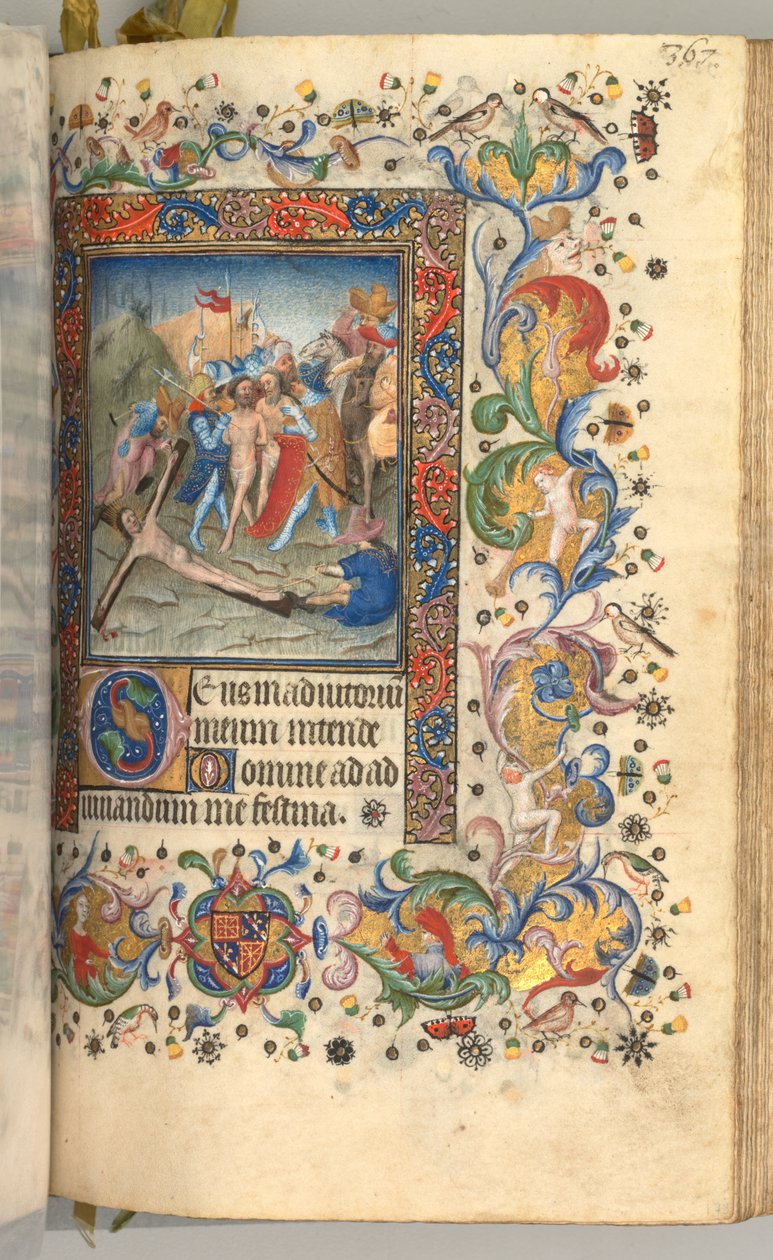 367
Deus in adiutoriū
meum intende
Domine ad ad
iuuandum me festina.